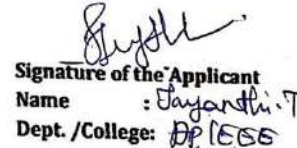 Signature of the Applicant
Name : Jayanthi.T
Dept. /College: AP/EEE